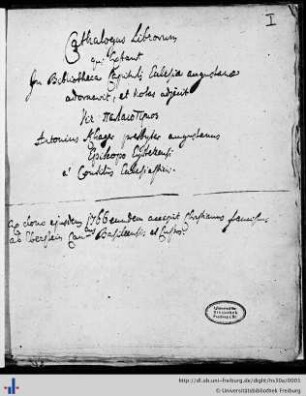 I
Cathalogus Librorum
qui Extant
in Bibliotheca Capituli Ecclesiae augustanae
adornavit, et notas adjecit
Antonius presbyter augustanus
Episcopo
a Consiliis Ecclesiasticis.
dono ejusdem 1766 eundem accepit
ab Eberstein Can. Basileensis et
Universitäts
Bibliothek
Freiburg i. Br.
http://dl.ub.uni-freiburg.de/diglit/hs30a/0001
© Universitätsbibliothek Freiburg